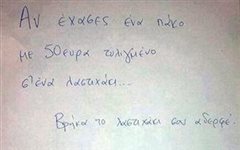 Αν έχασες ένα πάκο
με 50ευρα τυλιγμένο
στένα λαστιχάκι...
Βρήκα το λαστιχάκι σου αδερφέ.